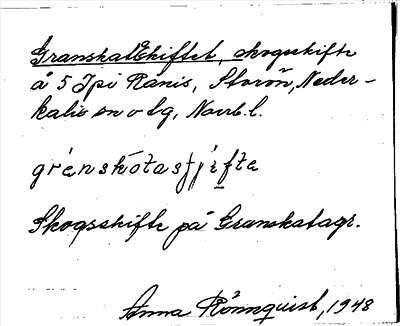 Granskatskiftet, skogsskifte
å 5 Ipi Ranis, Storön, Neder-
kalix sn o tg, Norrb. l.
grènskòtasʃjifte
Skogsskifte på Granskatagr.
Anna Rönnquist, 1948